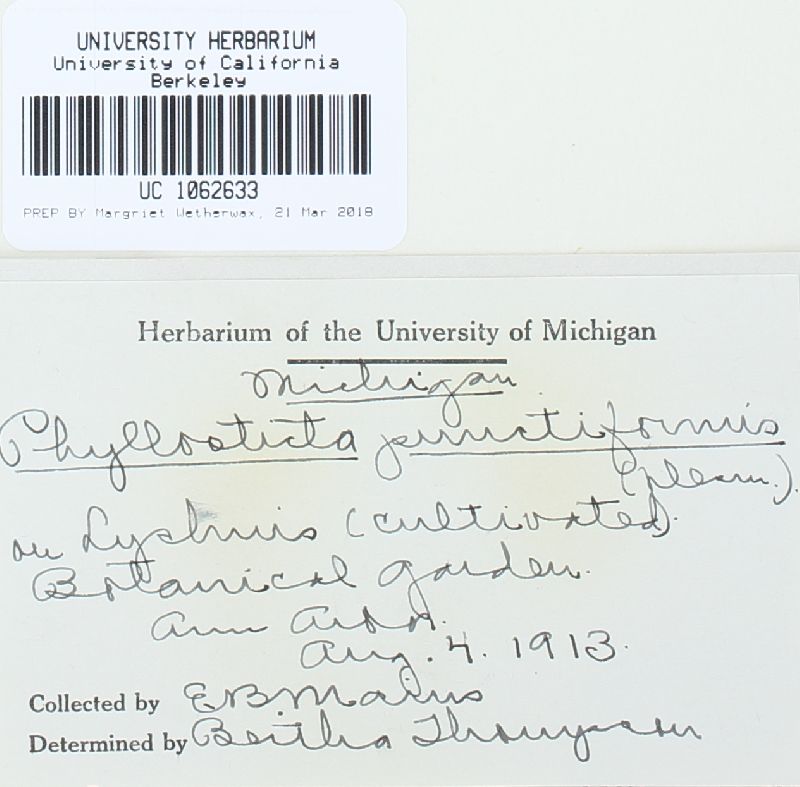 UNIVERSITY HERBARIUM
University of California
Berkeley
UC 1062633
PREP BY Margriet Wetherwax, 21 Mar 2018
Herbarium of the University of Michigan
Michigan
Phyllosticta punctiformis
on Lychnis (cultivated).
Botanical garden.
Ann Arbor.
Aug. 4. 1913.
Collected by E B Mains
Determined by Bertha Thompson